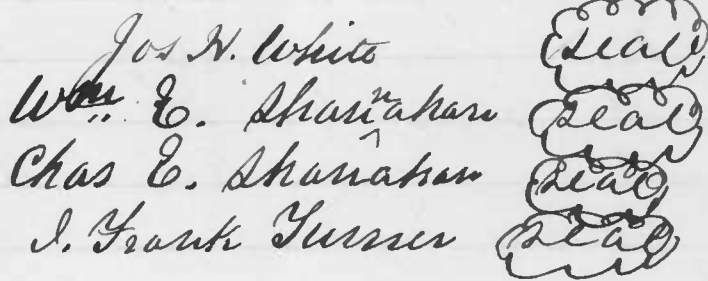 Jos H. White seal
Wm. E. Shannahan seal
Chas E. Shanahan seal
J. Frank Turner seal